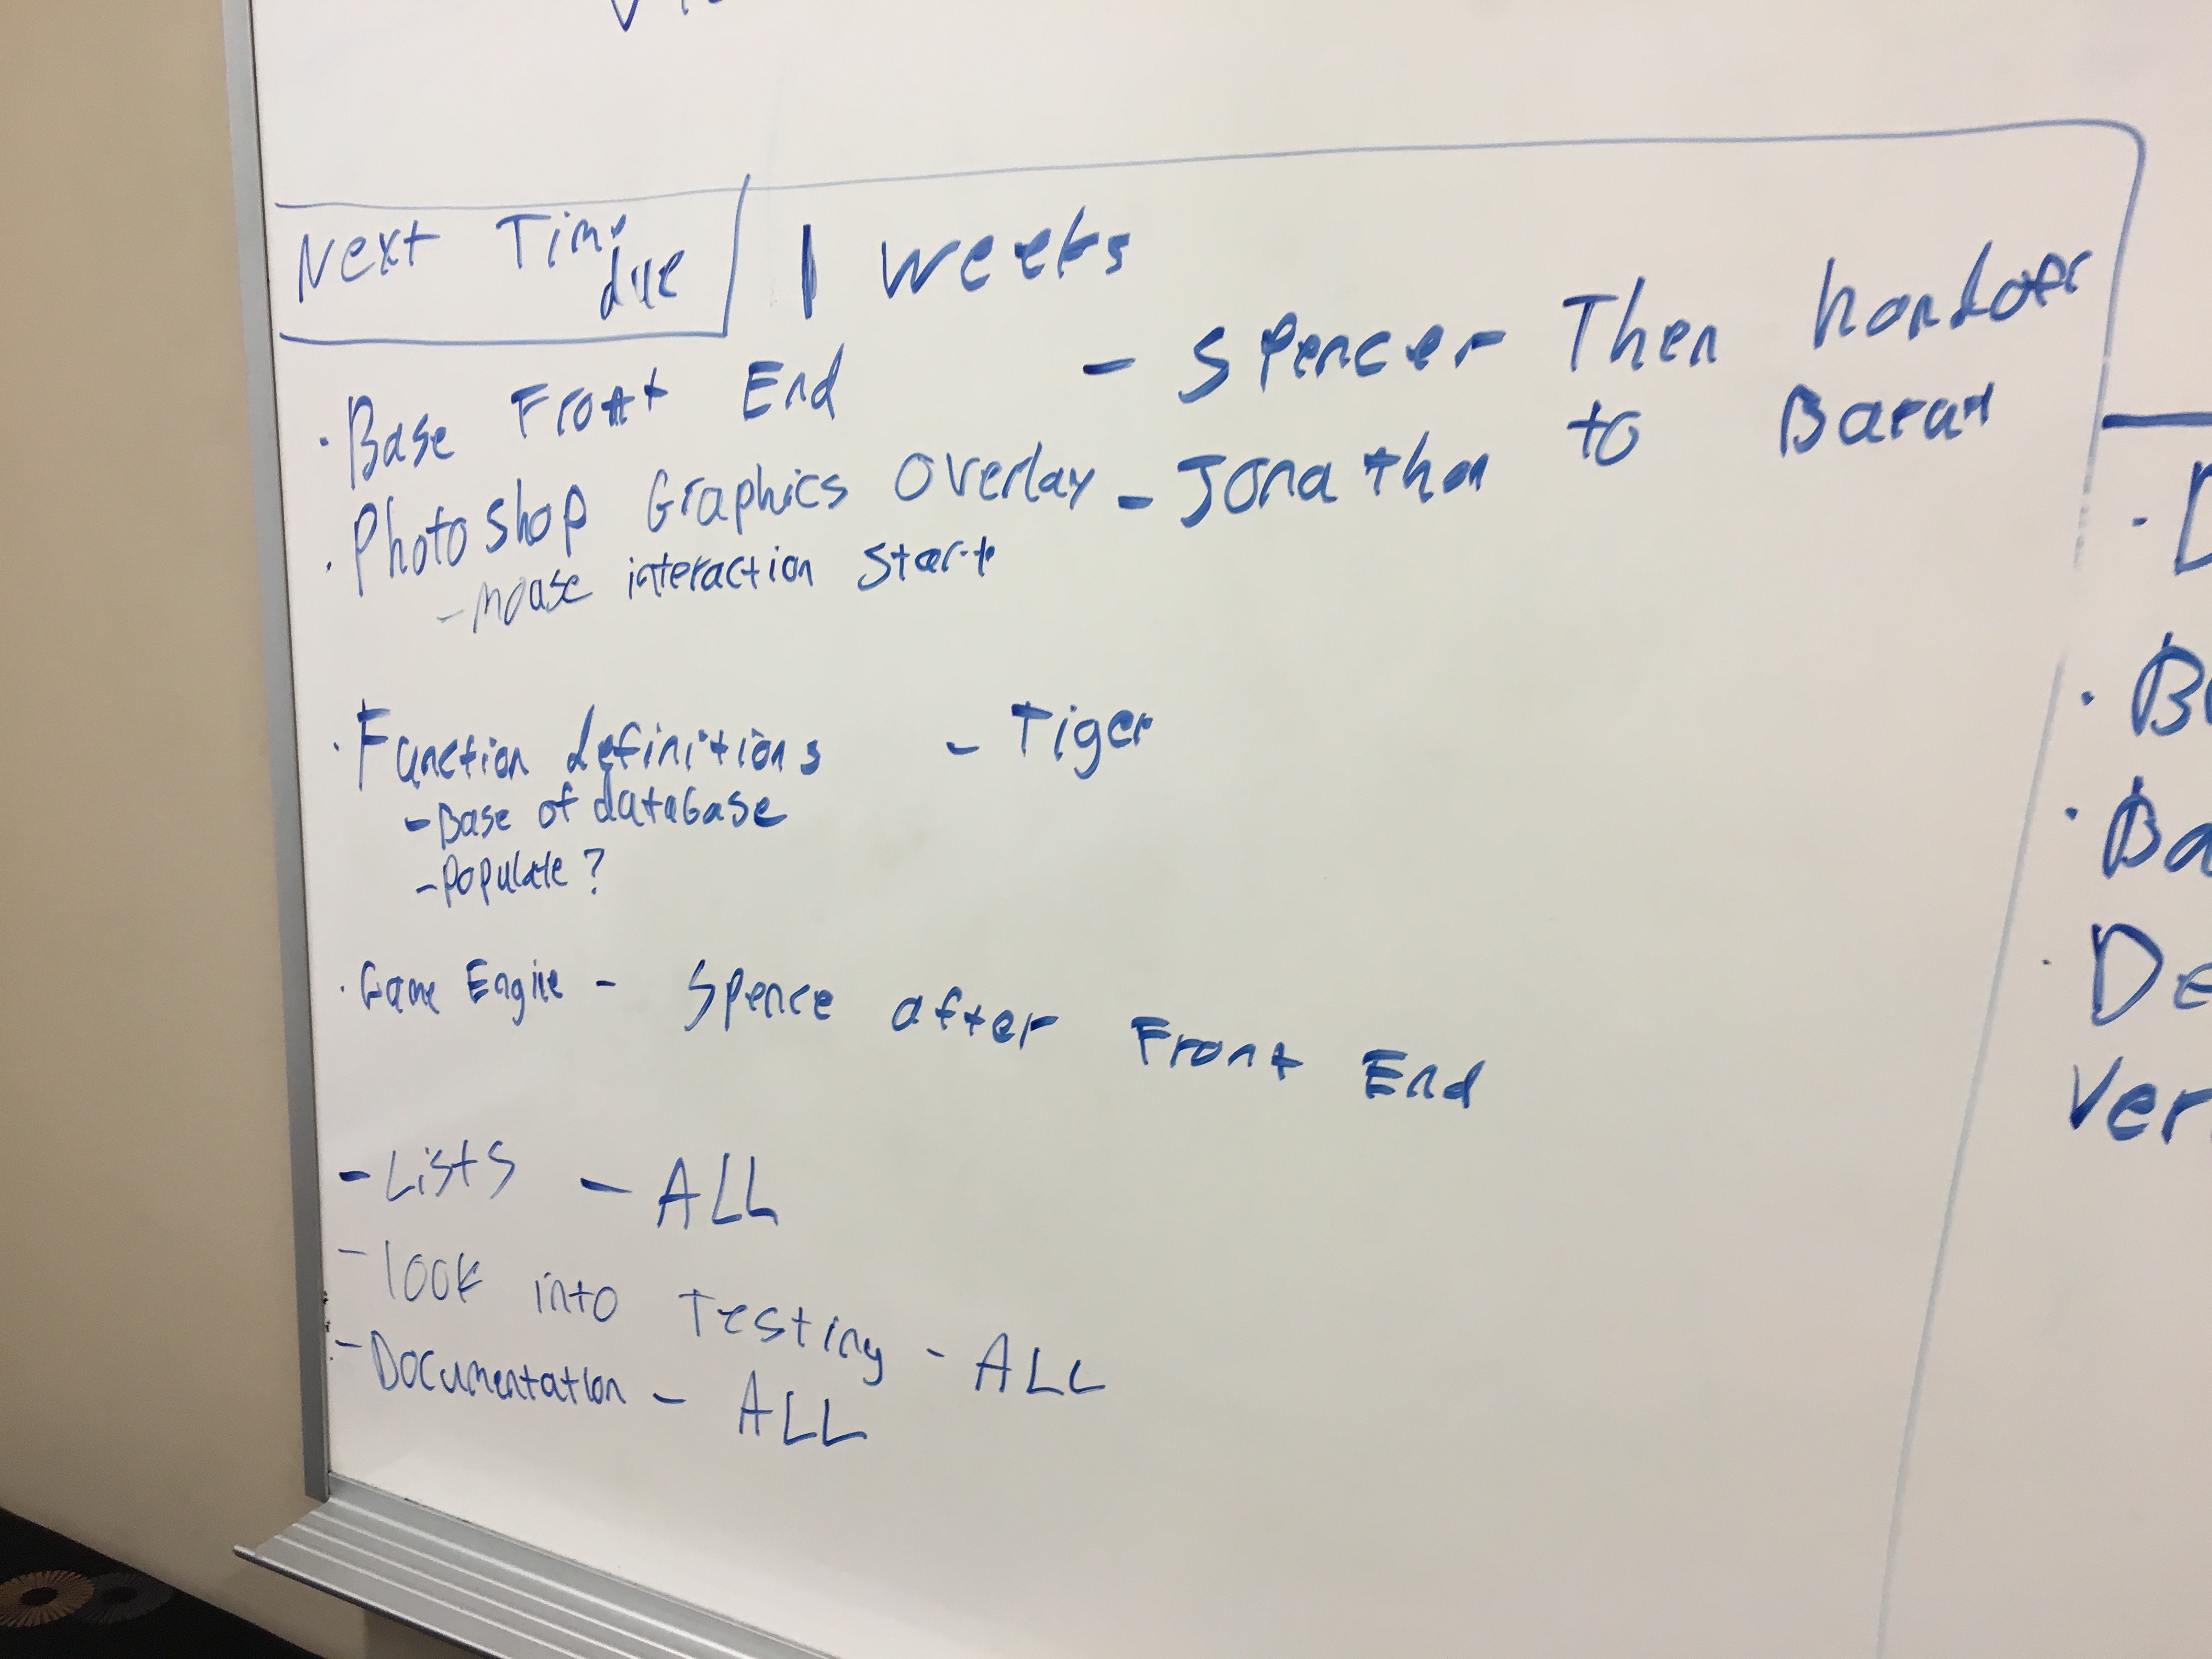 Next Time
due
1 weeks
· Base Front End - Spencer Then handoff
to Barat
· Photoshop Graphics Overlay - Jonathon
- mouse interaction start
· Function definitions - Tiger
- Base of database
- Populate?
· Game Engine - Spence after Front End
- Lists - ALL
- look into Testing - ALL
- Documentation - ALL
Ver